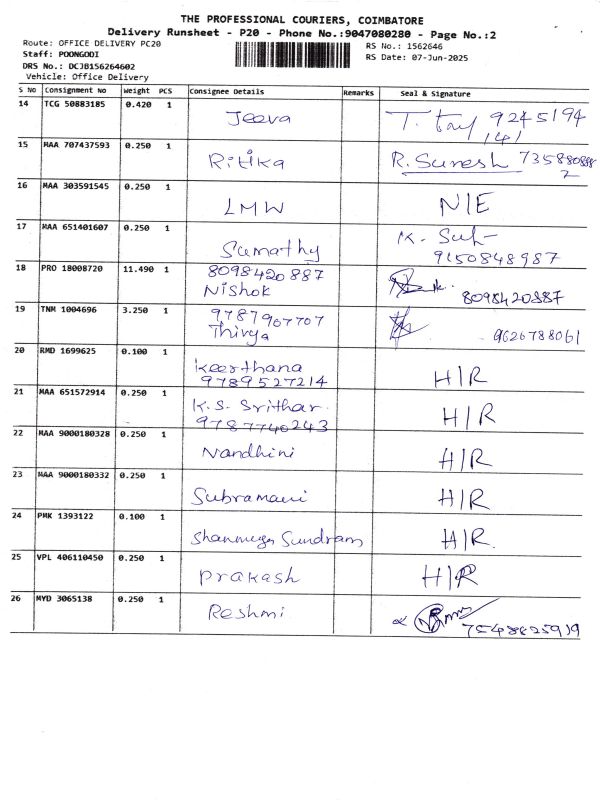 THE PROFESSIONAL COURIERS, COIMBATORE
Delivery Runsheet - P20 - Phone No.:9047080280 - Page No.:2
Route: OFFICE DELIVERY PC20
RS No.: 1562646
Staff: POONGODI
RS Date: 07-Jun-2025
DRS No.: DCJB156264602
Vehicle: Office Delivery
S No Consignment No Weight PCS Consignee Details Remarks Seal & Signature
14 TCG 50883185 0.420 1 Jeeva 9245194
141
15 MAA 707437593 0.250 1 Ritika R. Suresh 735880888
2
16 MAA 303591545 0.250 1 LMW N/E
17 MAA 651401607 0.250 1 Sumathy K.
9150848987
18 PRO 18008720 11.490 1 8098420887
Nishok 8098420887
19 TNM 1004696 3.250 1 9787907707
Thivya 9626788061
20 RMD 1699625 0.100 1 Keerthana H/R
9789527214
21 MAA 651572914 0.250 1 K.S. Srithar. H/R
9787740243
22 MAA 9000180328 0.250 1 Nandhini H/R
23 MAA 9000180332 0.250 1 Subramani H/R
24 PMK 1393122 0.100 1 Shanmuga Sundram H/R.
25 VPL 406110450 0.250 1 Prakash H/R
26 MYD 3065138 0.250 1 Reshmi
7548825919